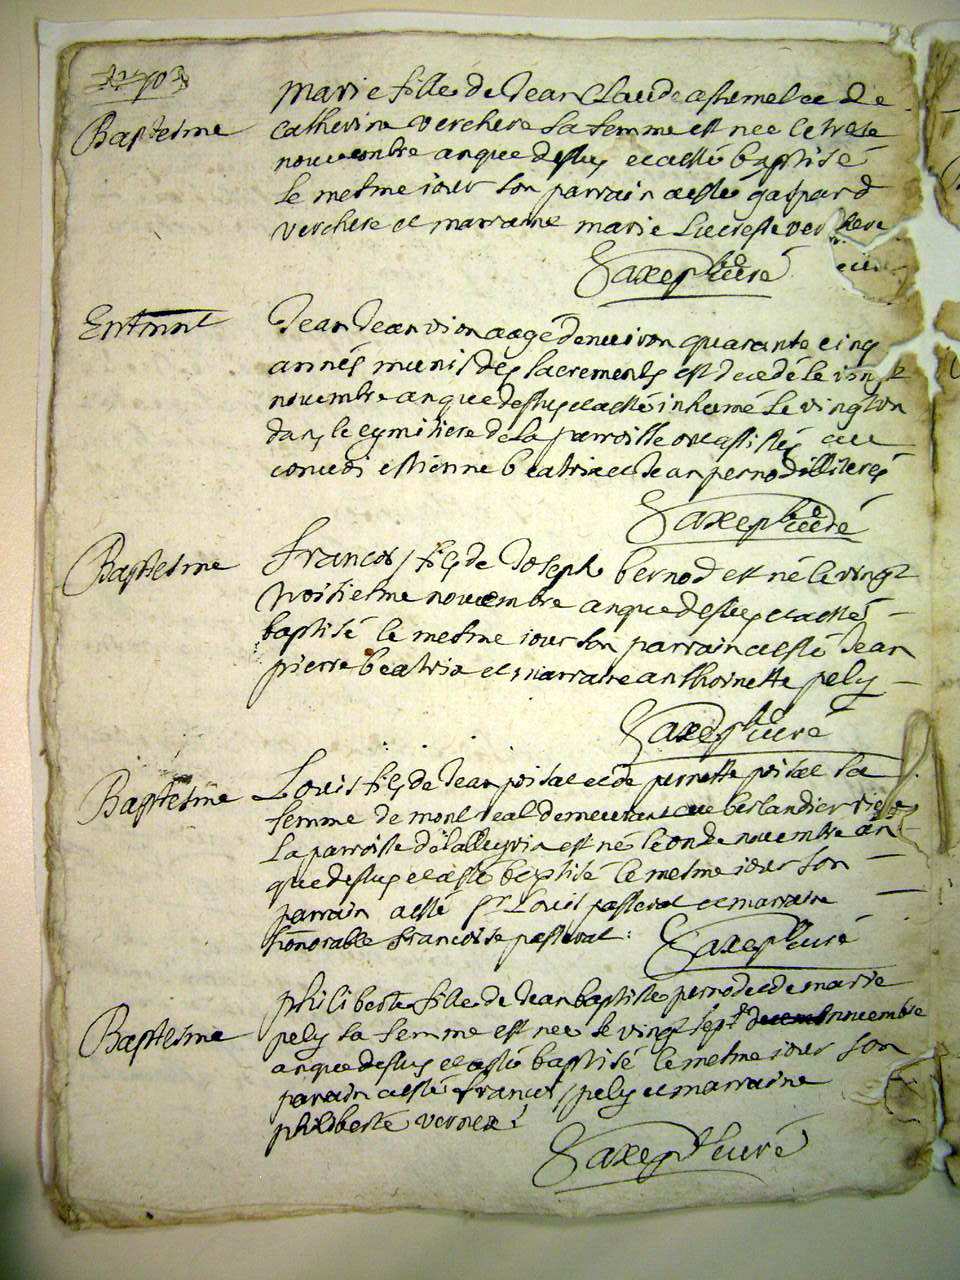 1703
Baptesme
Marie fille de Jean Claude et de
catherine verchere sa femme est nee le
novembre an que dessus et a esté baptisé
le mesme iour son parrain a esté gaspard
verchere et marraine marie verchere
curé
Entrmnt
Jean Jean aagé denuiron quarante cinq
années munis des sacrements est decedé le vingt
novembre an que dessus et a esté inhumé le vingt un
dans le cymitiere de la parroisse ont assistés au
convoi estienne beatrix et Jean pernod illiterés
curé
Baptesme
francois fils de Joseph bernod est né le vingt
troisiesme novembre an que dessus et a esté
baptisé le mesme iour son parrain a esté Jean
pierre beatrix et marraine anthoinette pely
curé
Baptesme
Louis fils de Jean et de pernette sa
femme de montreal demeurant au
la parroisse de est né le onze novembre an
que dessus et a esté baptisé le mesme iour son
parrain a esté Sr Louis et marraine
honorable francoise
curé
Baptesme
philiberte fille de Jean baptiste pernod et de marie
pely sa femme est nee le vingt sept novembre
an que dessus et a esté baptisé le mesme iour son
parrain a esté francois pely et marraine
philiberte
curé